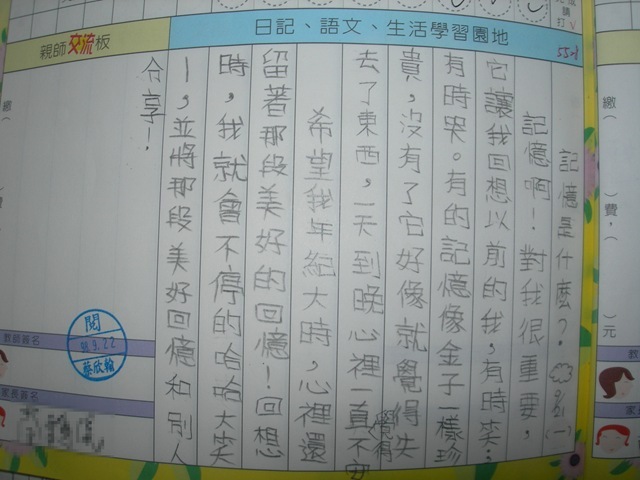 日記、語文、生活學習園地
親師交流板
記憶是什麼?
記憶啊!對我很重要,
它讓我回想以前的我,有時笑,
有時哭。有的記憶像金子一樣珍
貴,沒有了它好像就覺得失
去了東西,一天到晚心裡一直不安
希望我年紀大時,心裡還
留著那段美好的回憶!回想
時,我就會不停的哈哈大笑
!,並將那段美好回憶和別人
分享!
教師簽名
閱
9.22
家長簽名
繳(
)費,(
)元